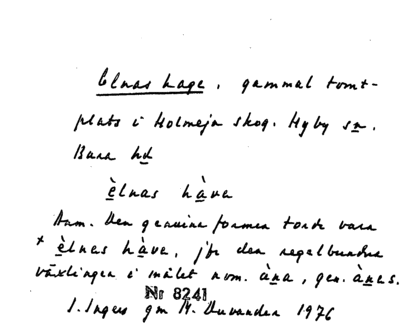 Elnas hage, gammal tomt-
plats i Holmeja skog. Hyby sn.
Bara hd
èlnas hàva
Anm. Den genuina formen torde vara
* èlnes hàve, jfr den regelbundna
växlingen i målet nom. àna, gen. ànes.
Nr 8241
I. Ingers gm M. Duvander 1976